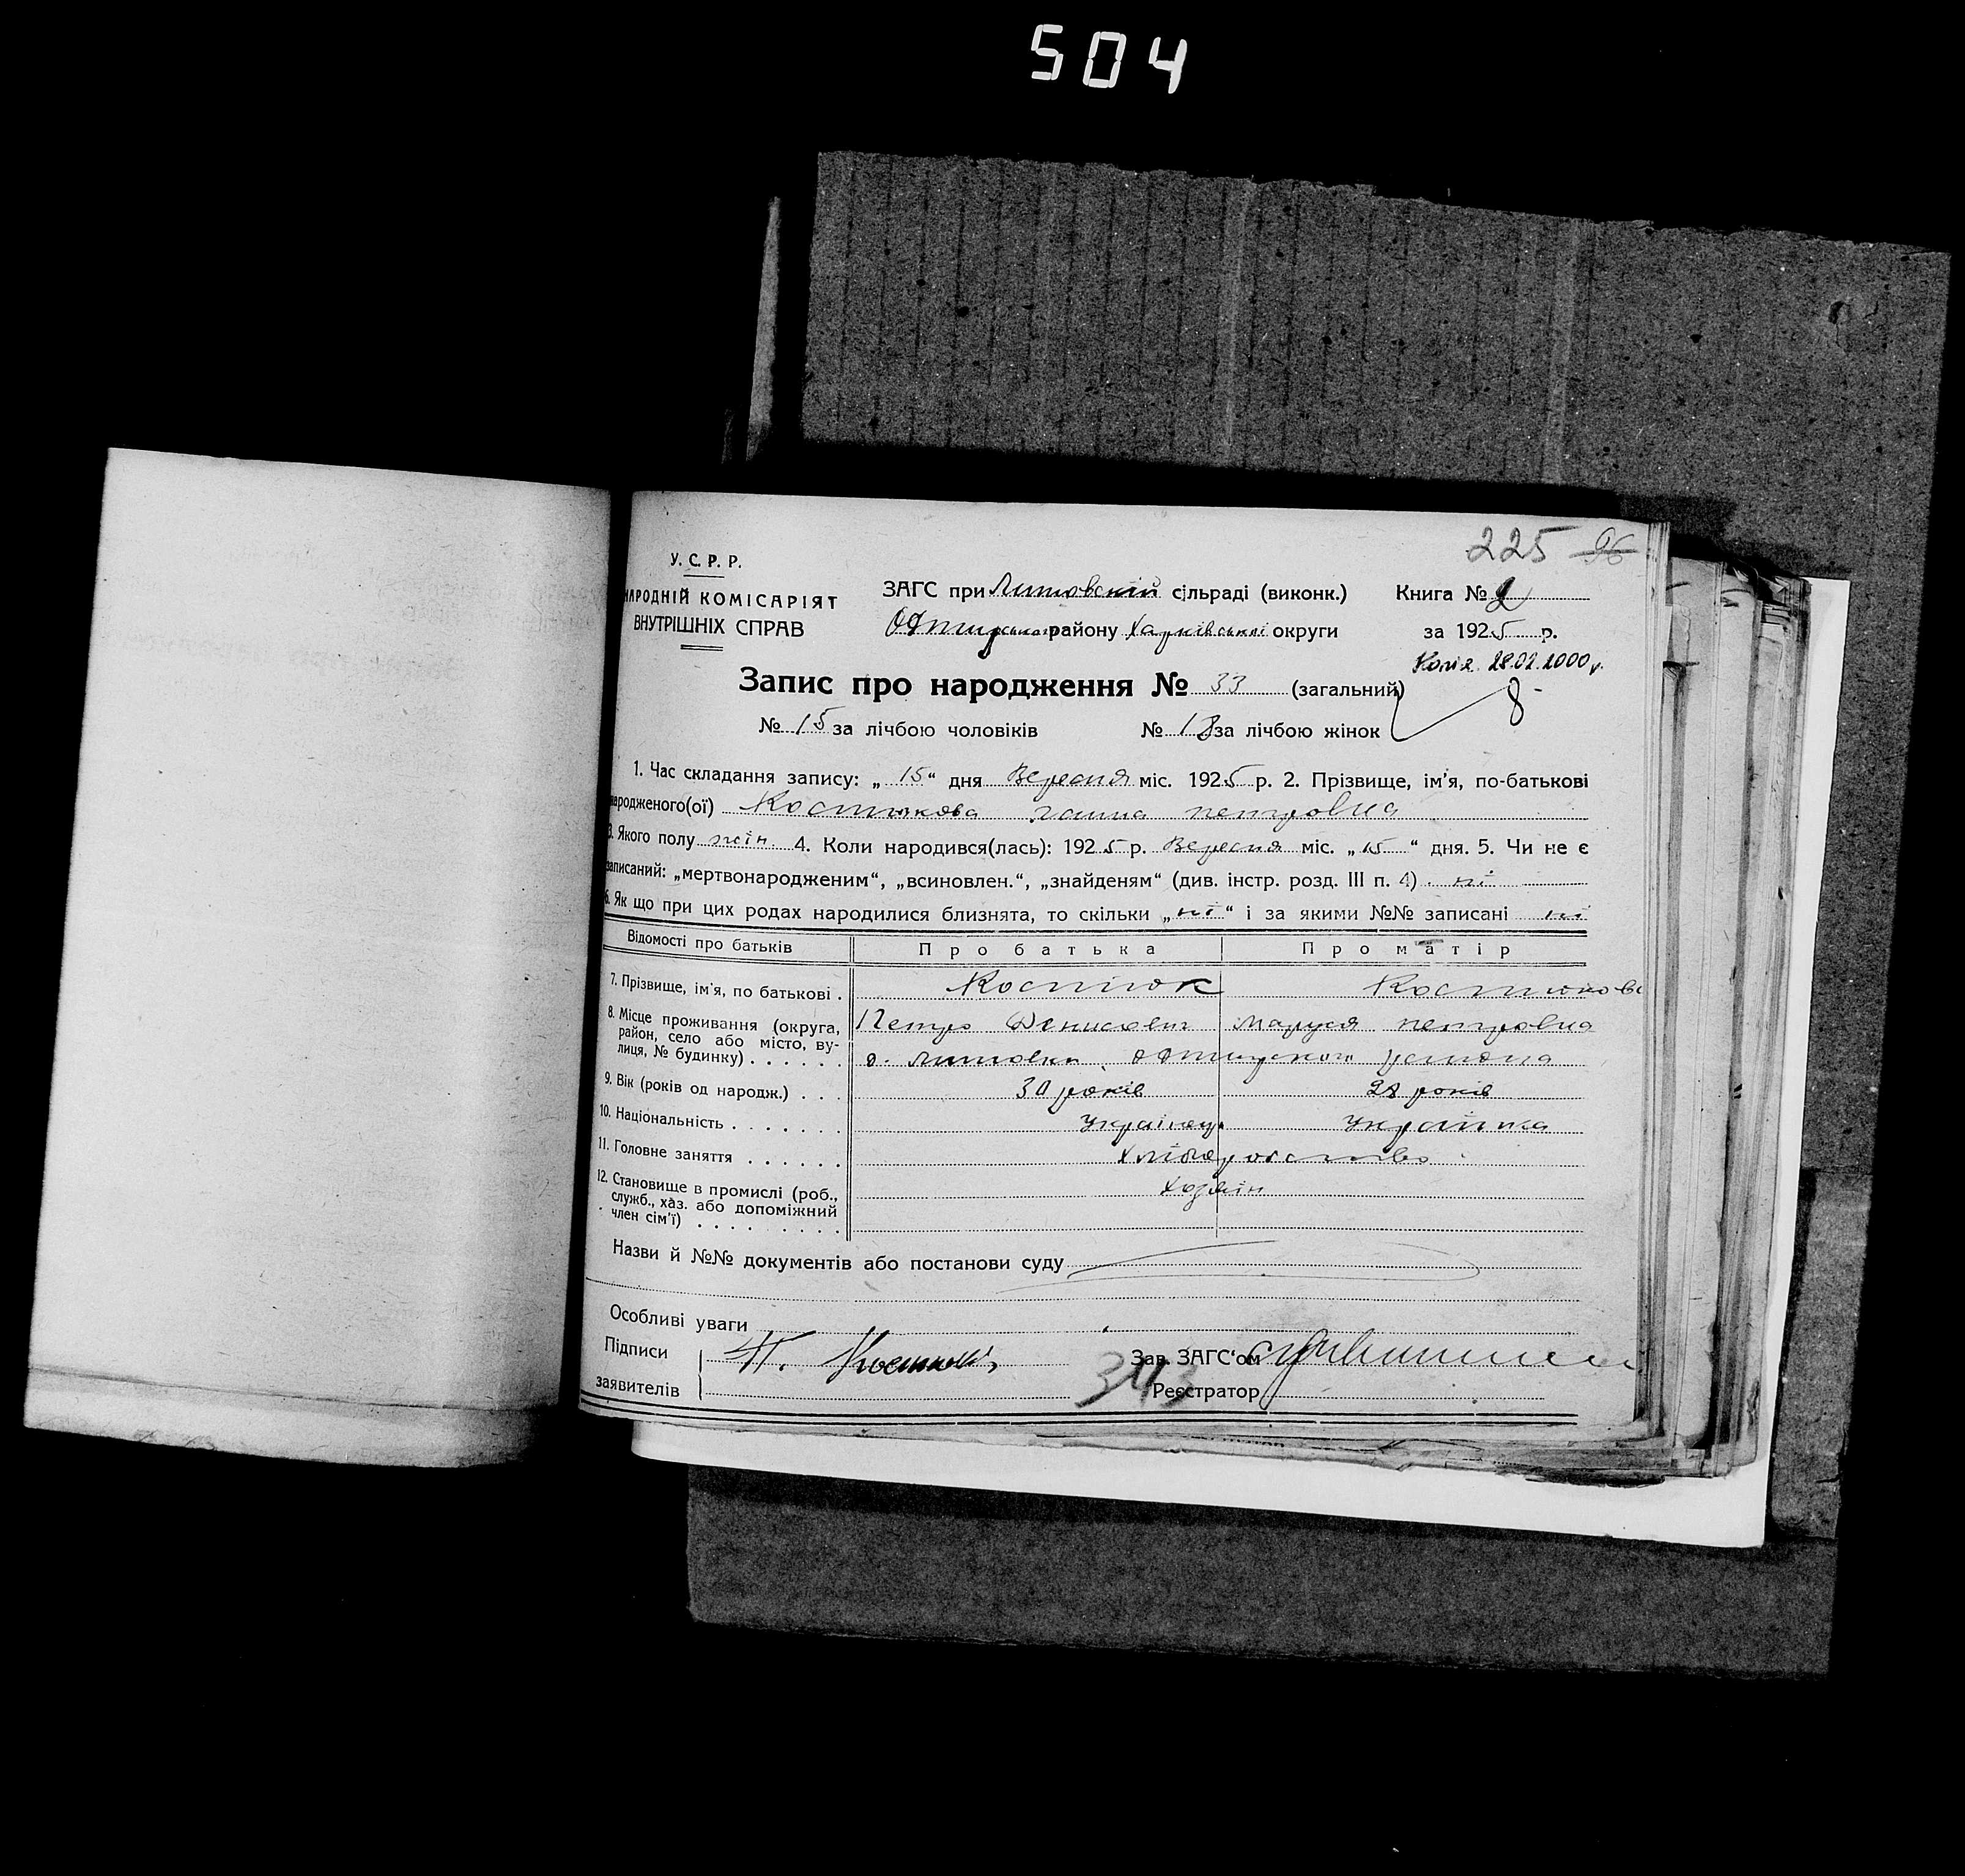 504
225 96
У. С. Р. Р.
НАРОДНІЙ КОМІСАРІЯТ
ВНУТРІШНІХ СПРАВ
ЗАГС при Литовскій сільраді (виконк.)
району Харківської округи
Книга № 2
за 1925 р.
Копія 28.02.2000 р.
Запис про народження № 33 (загальний)
8
№ 15 за лічбою чоловіків № 18 за лічбою жінок
1. Час складання запису: „ 15 “ дня Вересня міс. 1925 р. 2. Прізвище, ім’я, по-батькові
народженого(ої) Костюкова ганна петровна
3. Якого полу жін. 4. Коли народився(лась): 1925 р. Вересня міс. „ 15 “ дня. 5. Чи не є
записаний: „мертвонародженим“, „всиновлен.“, „знайденям“ (див. інстр. розд. III п. 4) . ні
6. Як що при цих родах народилися близнята, то скільки „ ні “ і за якими №№ записані ні
Відомості про батьків Про батька Про матір
7. Прізвище, ім’я, по батькові . Костюк Костюкова
8. Місце проживання (округа, Петро Денисович Маруся петровна
район, село або місто, ву-
лиця, № будинку) . . . . . с. литовка
9. Вік (років од народж.) . . . 30 років 28 років
10. Національність . . . . . . . Українец Українка
11. Головне заняття . . . . . . Хліборобство
12. Становище в промислі (роб., Хозяїн
служб., хаз. або допоміжний
член сім’ї) . . . . . . . .
Назви й №№ документів або постанови суду
Особливі уваги
Підписи П. Зав. ЗАГС‘ом
заявителів 343 Реєстратор